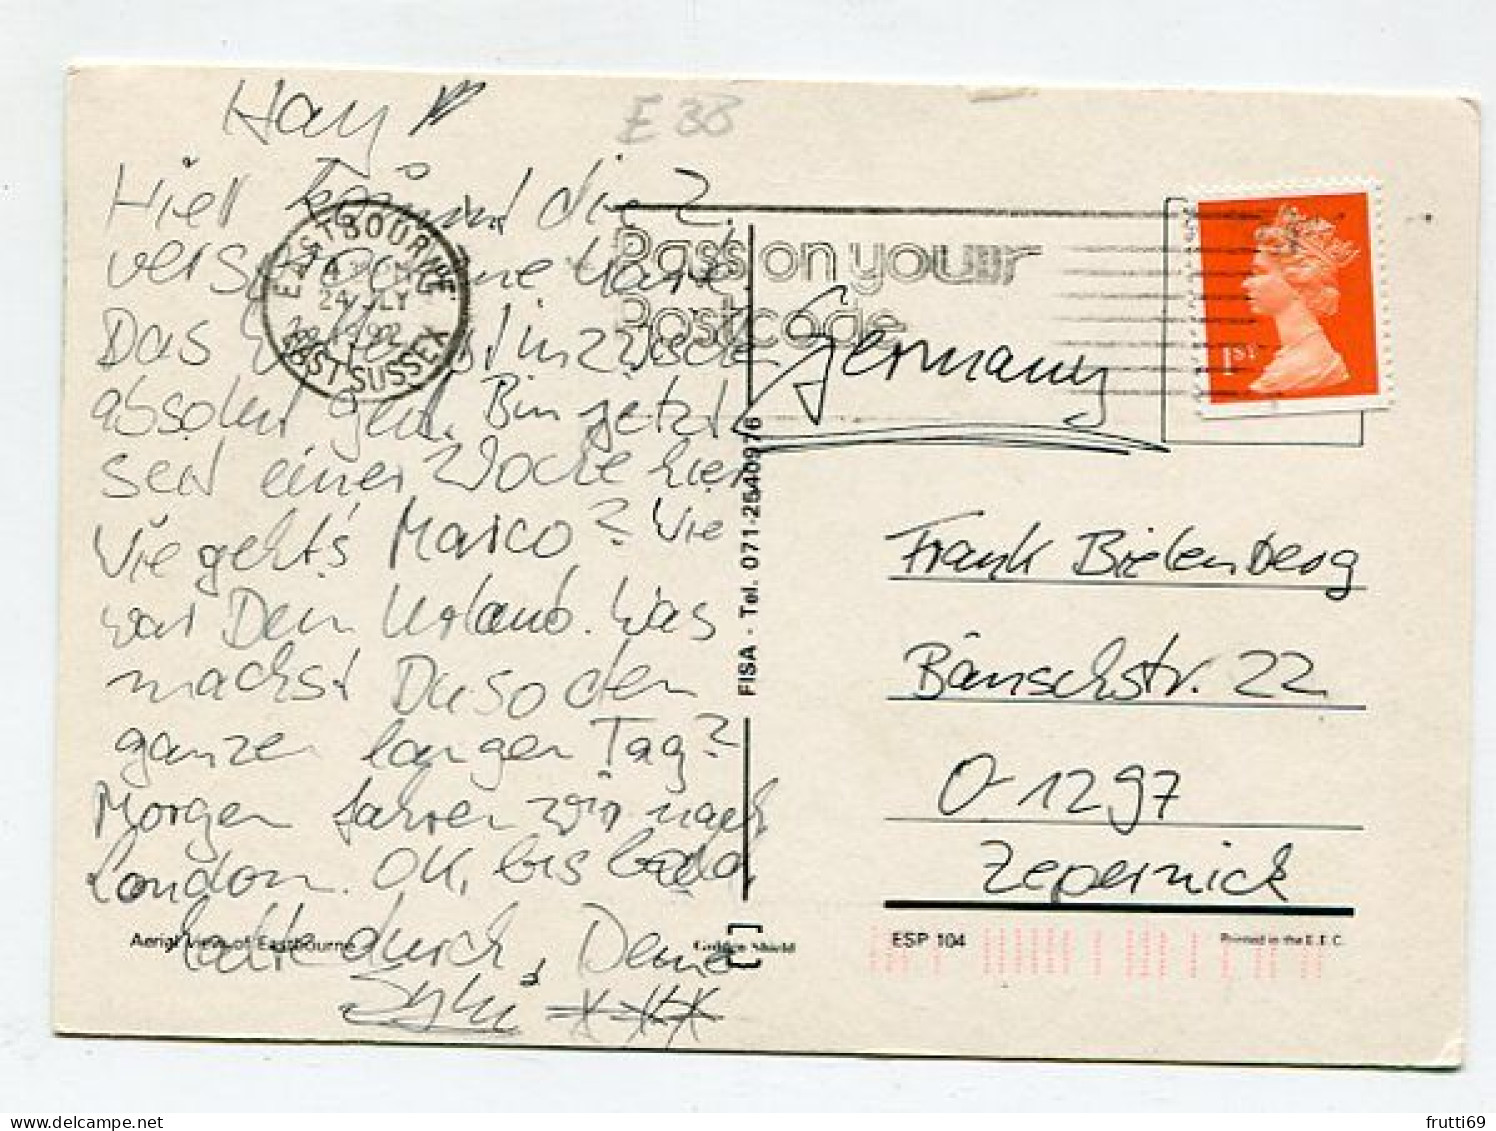 Hay
E 38
Hier kommt die 2.
versprochene Karte.
Das Wetter ist inzwischen
absolut geil. Bin jetzt
seit einer Woche hier
Wie geht's Marco? Wie
war Dein Urlaub. Was
machst Du so den
ganzen langen Tag?
Morgen fahren wir nach
London. OK, bis bald
halte durch, Deine
XXX
EASTBOURNE
24 JLY
1992
EAST SUSSEX
Pass on your
Postcode
1ST
Germany
Frank Bielenberg
Bänschstr. 22
O-1297
Zepernick
FISA - Tel. 071-2540976
Aerial View of Eastbourne
Golden Shield
[ ]
ESP 104
Printed in the E.E.C.
frutti69